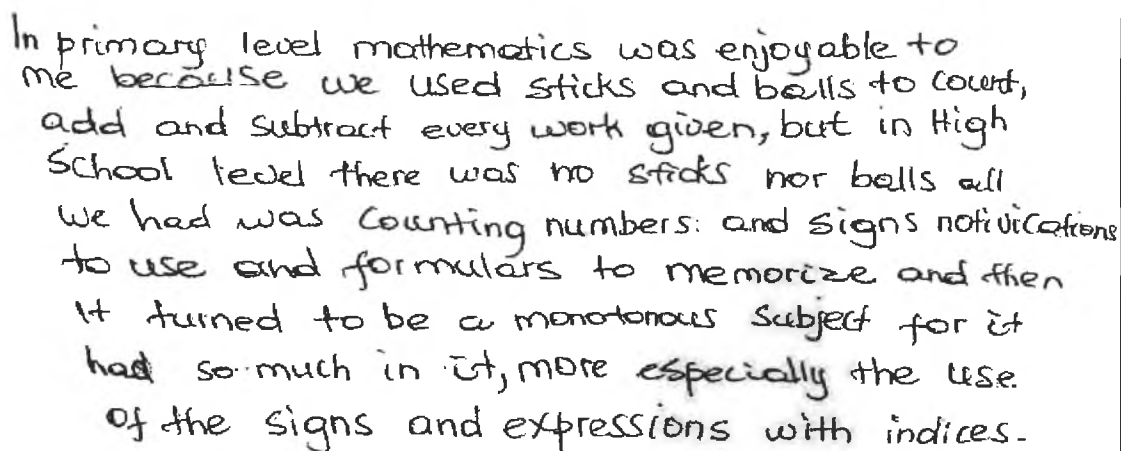 In primary level mathematics was enjoyable to
me because we used sticks and balls to count,
add and subtract every work given, but in High
School level there was no sticks nor balls all
we had was counting numbers: and signs notivications
to use and formulars to memorize and then
it turned to be a monotonous subject for it
had so much in it, more especially the use
of the signs and expressions with indices.